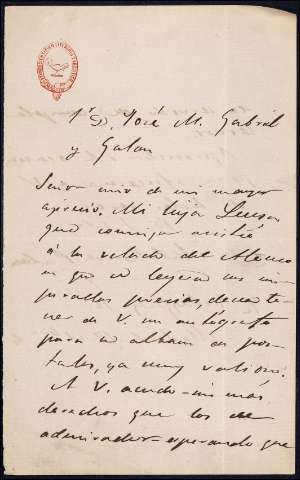 Sr. D. José M. Gabriel
y Galan
Señor mio de mi mayor
aprecio. Mi hija Luisa
que conmigo asistió
á la velada del Ateneo
en que se leyeron sus in
poesias, desea te
ner de V. un autógrafo
para su album de pos
tales, ya muy valioso.
A V. acudo sin mas
derechos que los de
admirador esperando que